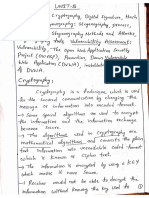 UNIT-III
Cryptography, Digital Signature, Hash
Steganography: Steganography, Process,
Steganography Methods and Attacks,
Vulnerability Assessment:
Vulnerability, The Open Web Application Security
Project (OWASP), Damn Vulnerable
Web Application (DVWA), Installation
of DVWA.
Cryptography:
Cryptography is a technique, which is used
in the secured communication by changing the
information into encoded format.
* Some special algorithms is used to encrypt
the information and the information exchange
become secure.
* The algorithms used in Cryptography are
mathematical algorithms and converts the
Information into unreadable coded format
which is known as Cipher text.
* The information is encrypted by using a KEY
which makes it more secure.
* Receiver could not be able to decrypt the
information without knowing the key used to